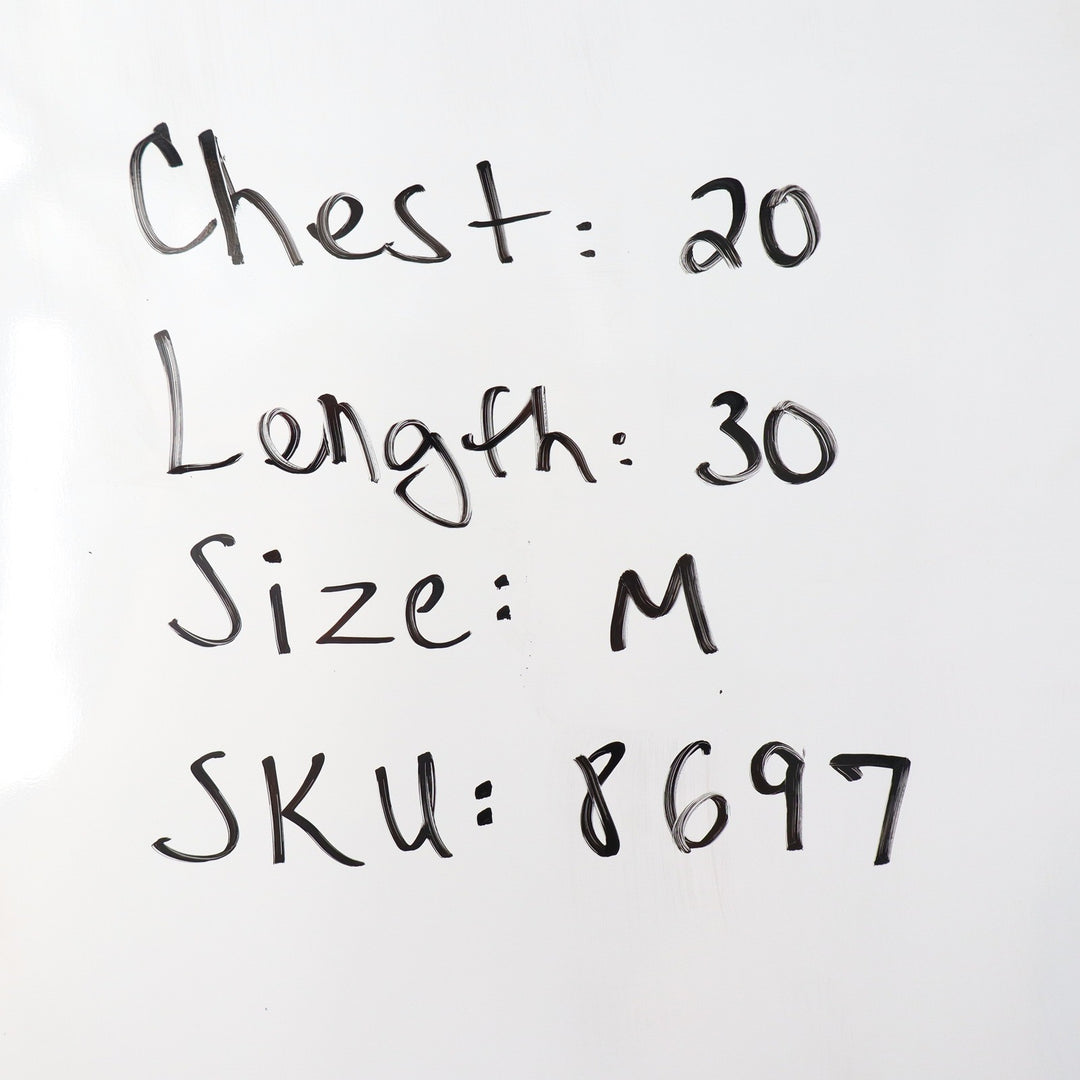 Chest: 20
Length: 30
Size: M
SKU: 8697